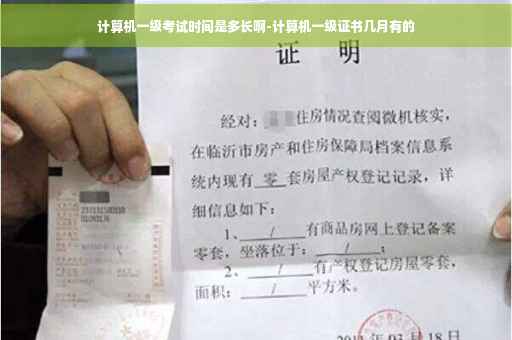 计算机一级考试时间是多长啊-计算机一级证书几月有的
证 明
经对：住房情况查阅微机核实，
在临沂市房产和住房保障局档案信息系
统内现有 零 套房屋产权登记记录，详
细信息如下：
1、 / 有商品房网上登记备案
零套，坐落位于： / ；
2、 / 有产权登记房屋零套，
面积： / 平方米。
03月18日